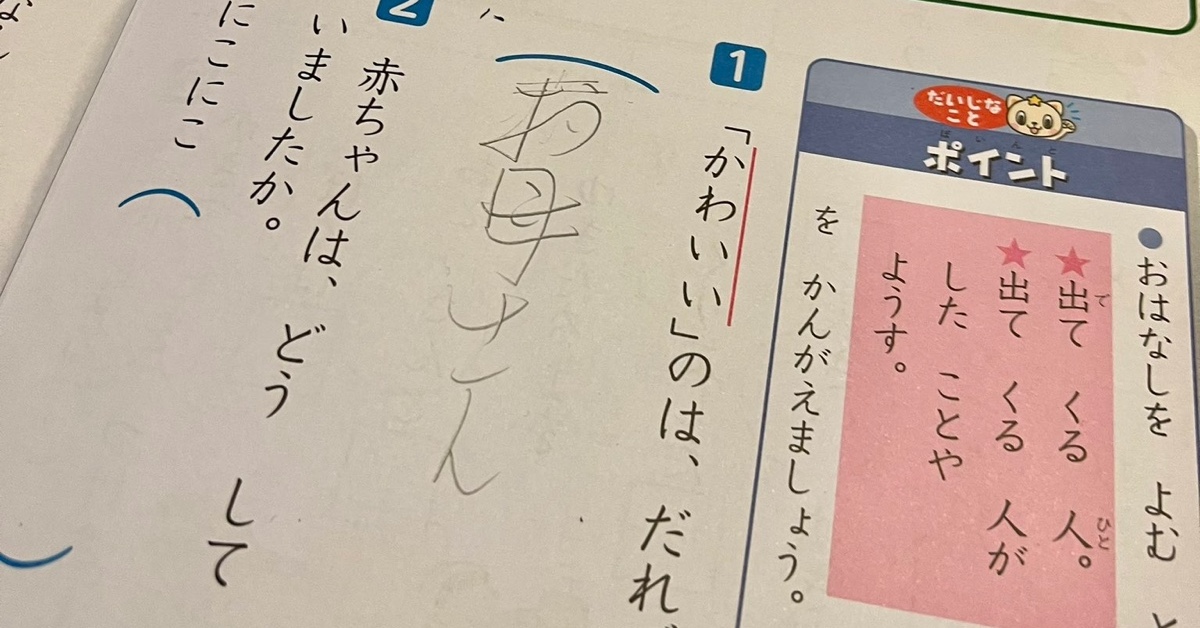 だいじな
こと
ポイント
ぽいんと
●おはなしを よむ と
★出て くる 人。
で
ひと
★出て くる 人が
した ことや
ようす。
を かんがえましょう。
1
「かわいい」のは、だれ
お母さん
2
赤ちゃんは、どう して
いましたか。
にこにこ